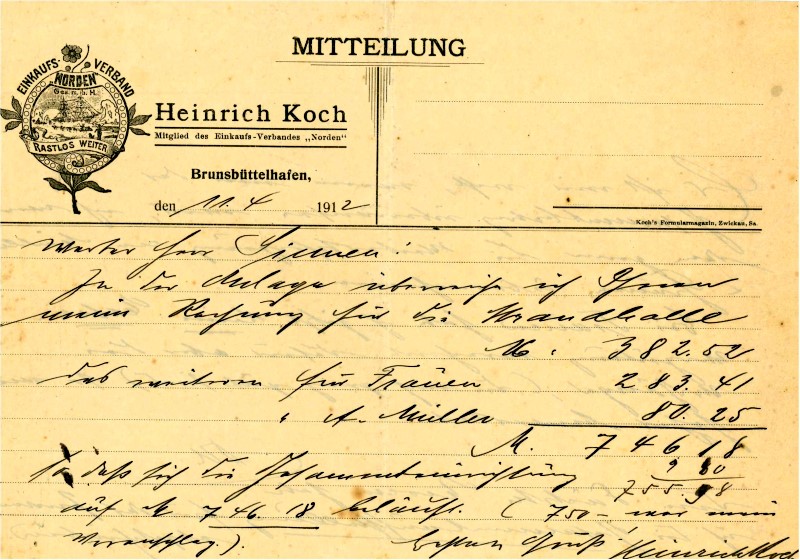 MITTEILUNG
EINKAUFS-VERBAND
„NORDEN"
Ges. m. b. H.
RASTLOS WEITER
Heinrich Koch
Mitglied des Einkaufs-Verbandes „Norden"
Brunsbüttelhafen,
den 11. 4 1912
Koch's Formularmagazin, Zwickau, Sa.
Werter Herr
In der Anlage überreiche ich Ihnen
meine Rechnung für die Strandhalle
M. 382.52
des weiteren für 283.41
" A. Müller 80.25
M. 746 18
9 80
755.98
so daß sich die Gesammteinrichtung
auf M 746.18 beläuft. (750 – war mein
Voranschlag.). besten Gruß! Heinrich Koch